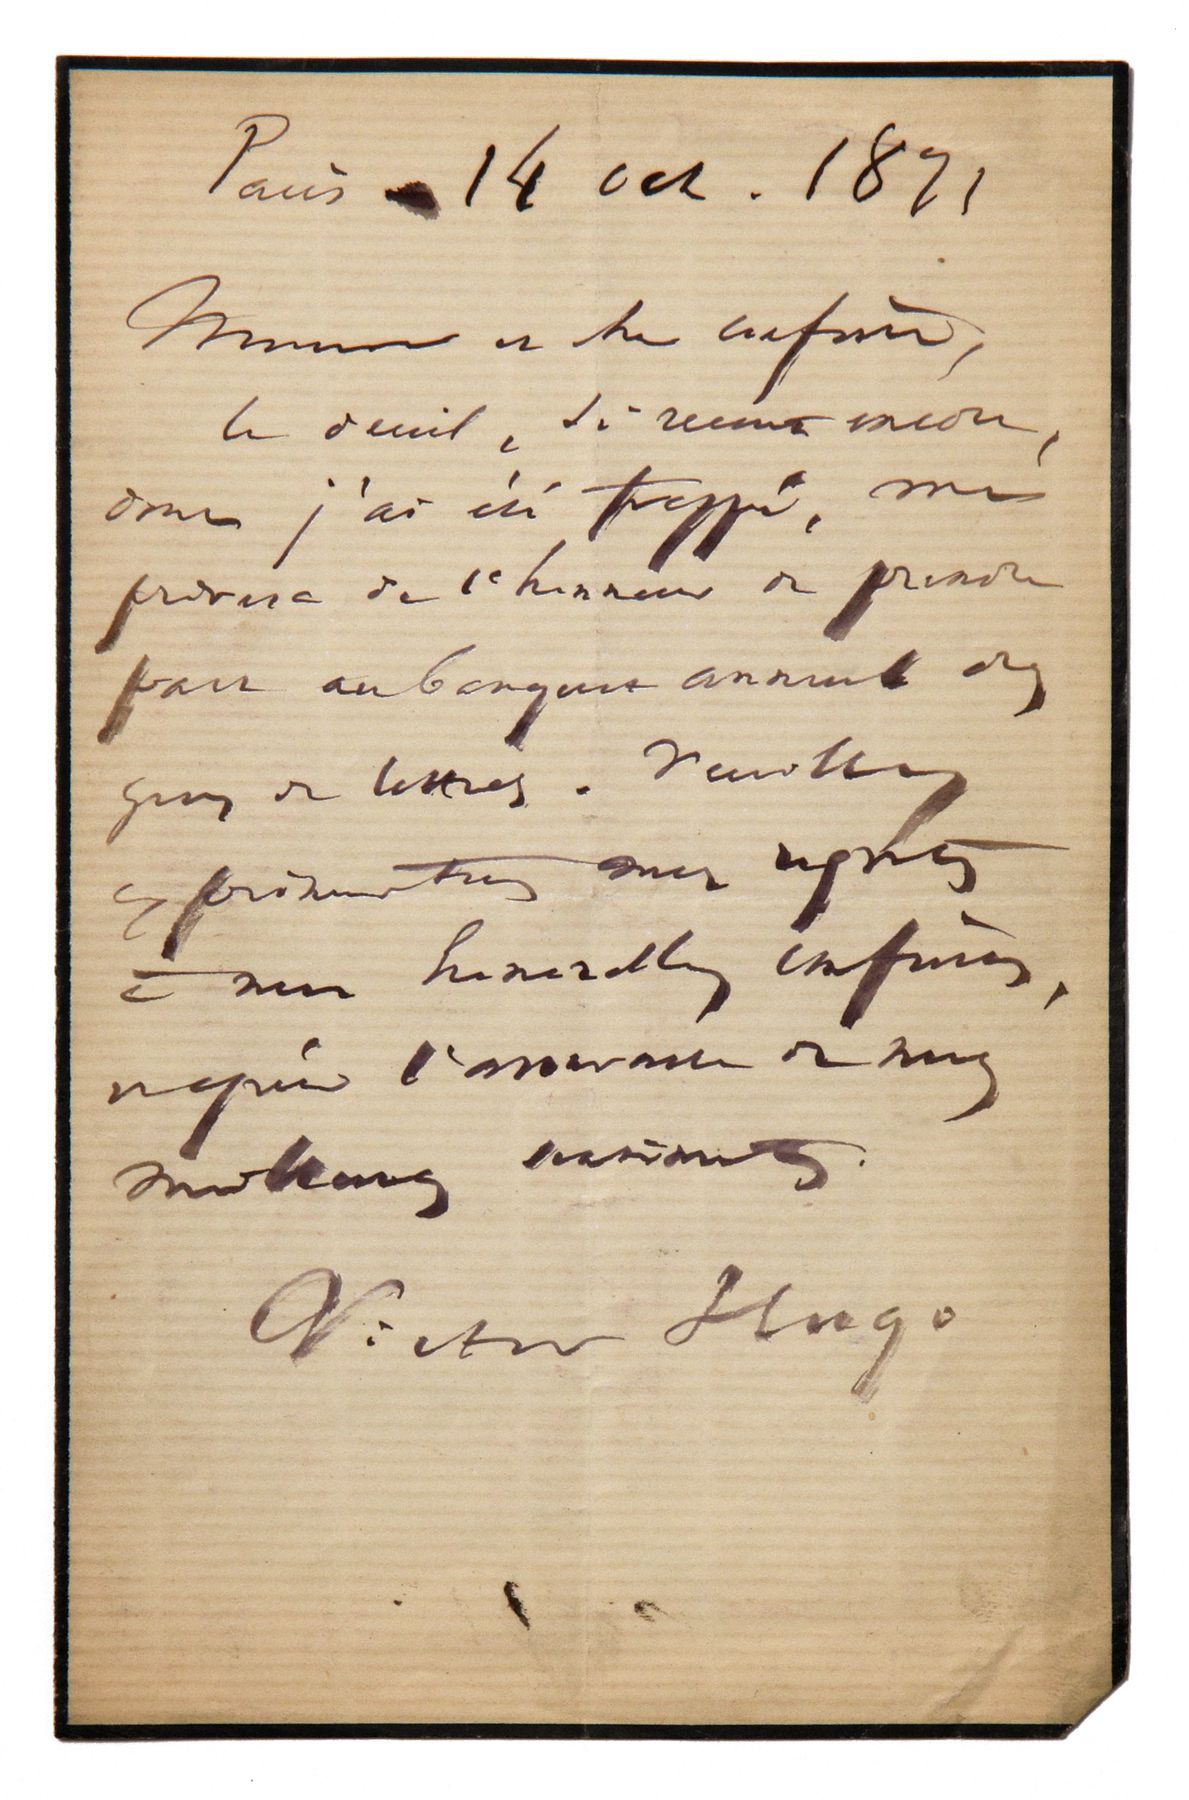 Paris - 14 oct. 1871
Monsieur et cher confrère,
le deuil, si récent encore,
dont j'ai été frappé, me
privera de l'honneur de prendre
part au banquet annuel des
gens de lettres. Veuillez
présenter mes regrets
à mes honorables confrères,
et agréer l'assurance de mes
meilleurs sentiments.
Victor Hugo